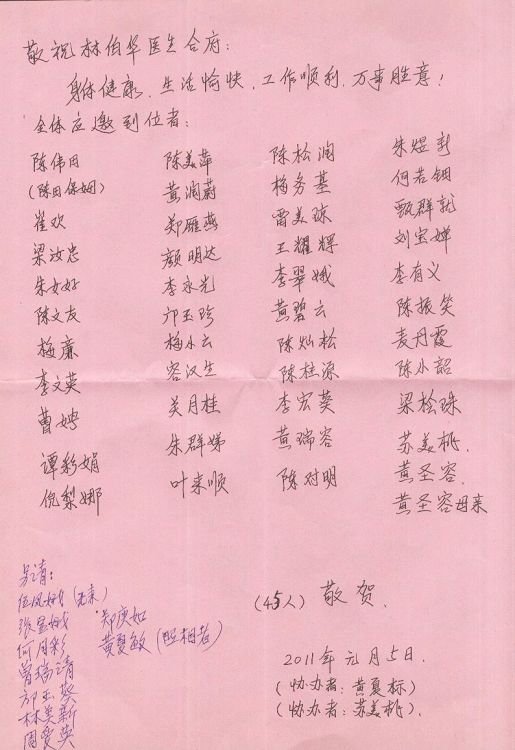 敬祝林伯华医生合府:
身体健康、生活愉快、工作顺利、万事胜意!
全体应邀到位者:
陈伟田 陈美萍 陈松润 朱煜新
(陈田保姆) 黄润蔚 梅务基 何若钿
崔欢 郑雁燕 雷美琼 甄群就
梁汝忠 颜明达 王耀辉 刘宝婵
朱女好 李永光 李翠娥 李有义
陈文友 邝玉珍 黄碧云 陈振笑
梅廉 梅小云 陈灿松 麦丹霞
李文英 容汉生 陈柱源 陈小韶
曹娉 关月桂 李宏葵 梁栓珠
谭彩娟 朱群娣 黄瑞容 苏美桃
倪梨娜 叶来顺 陈对明 黄圣容
黄圣容母亲
(45人) 敬贺
2011年元月5日
(协办者:黄夏标)
(协办者:苏美桃)
另请:
伍凤娥
张宝娥
何月彩
曾瑞清
邝玉葵
林美新
周爱英
郑庚如
黄夏敏(照相者)